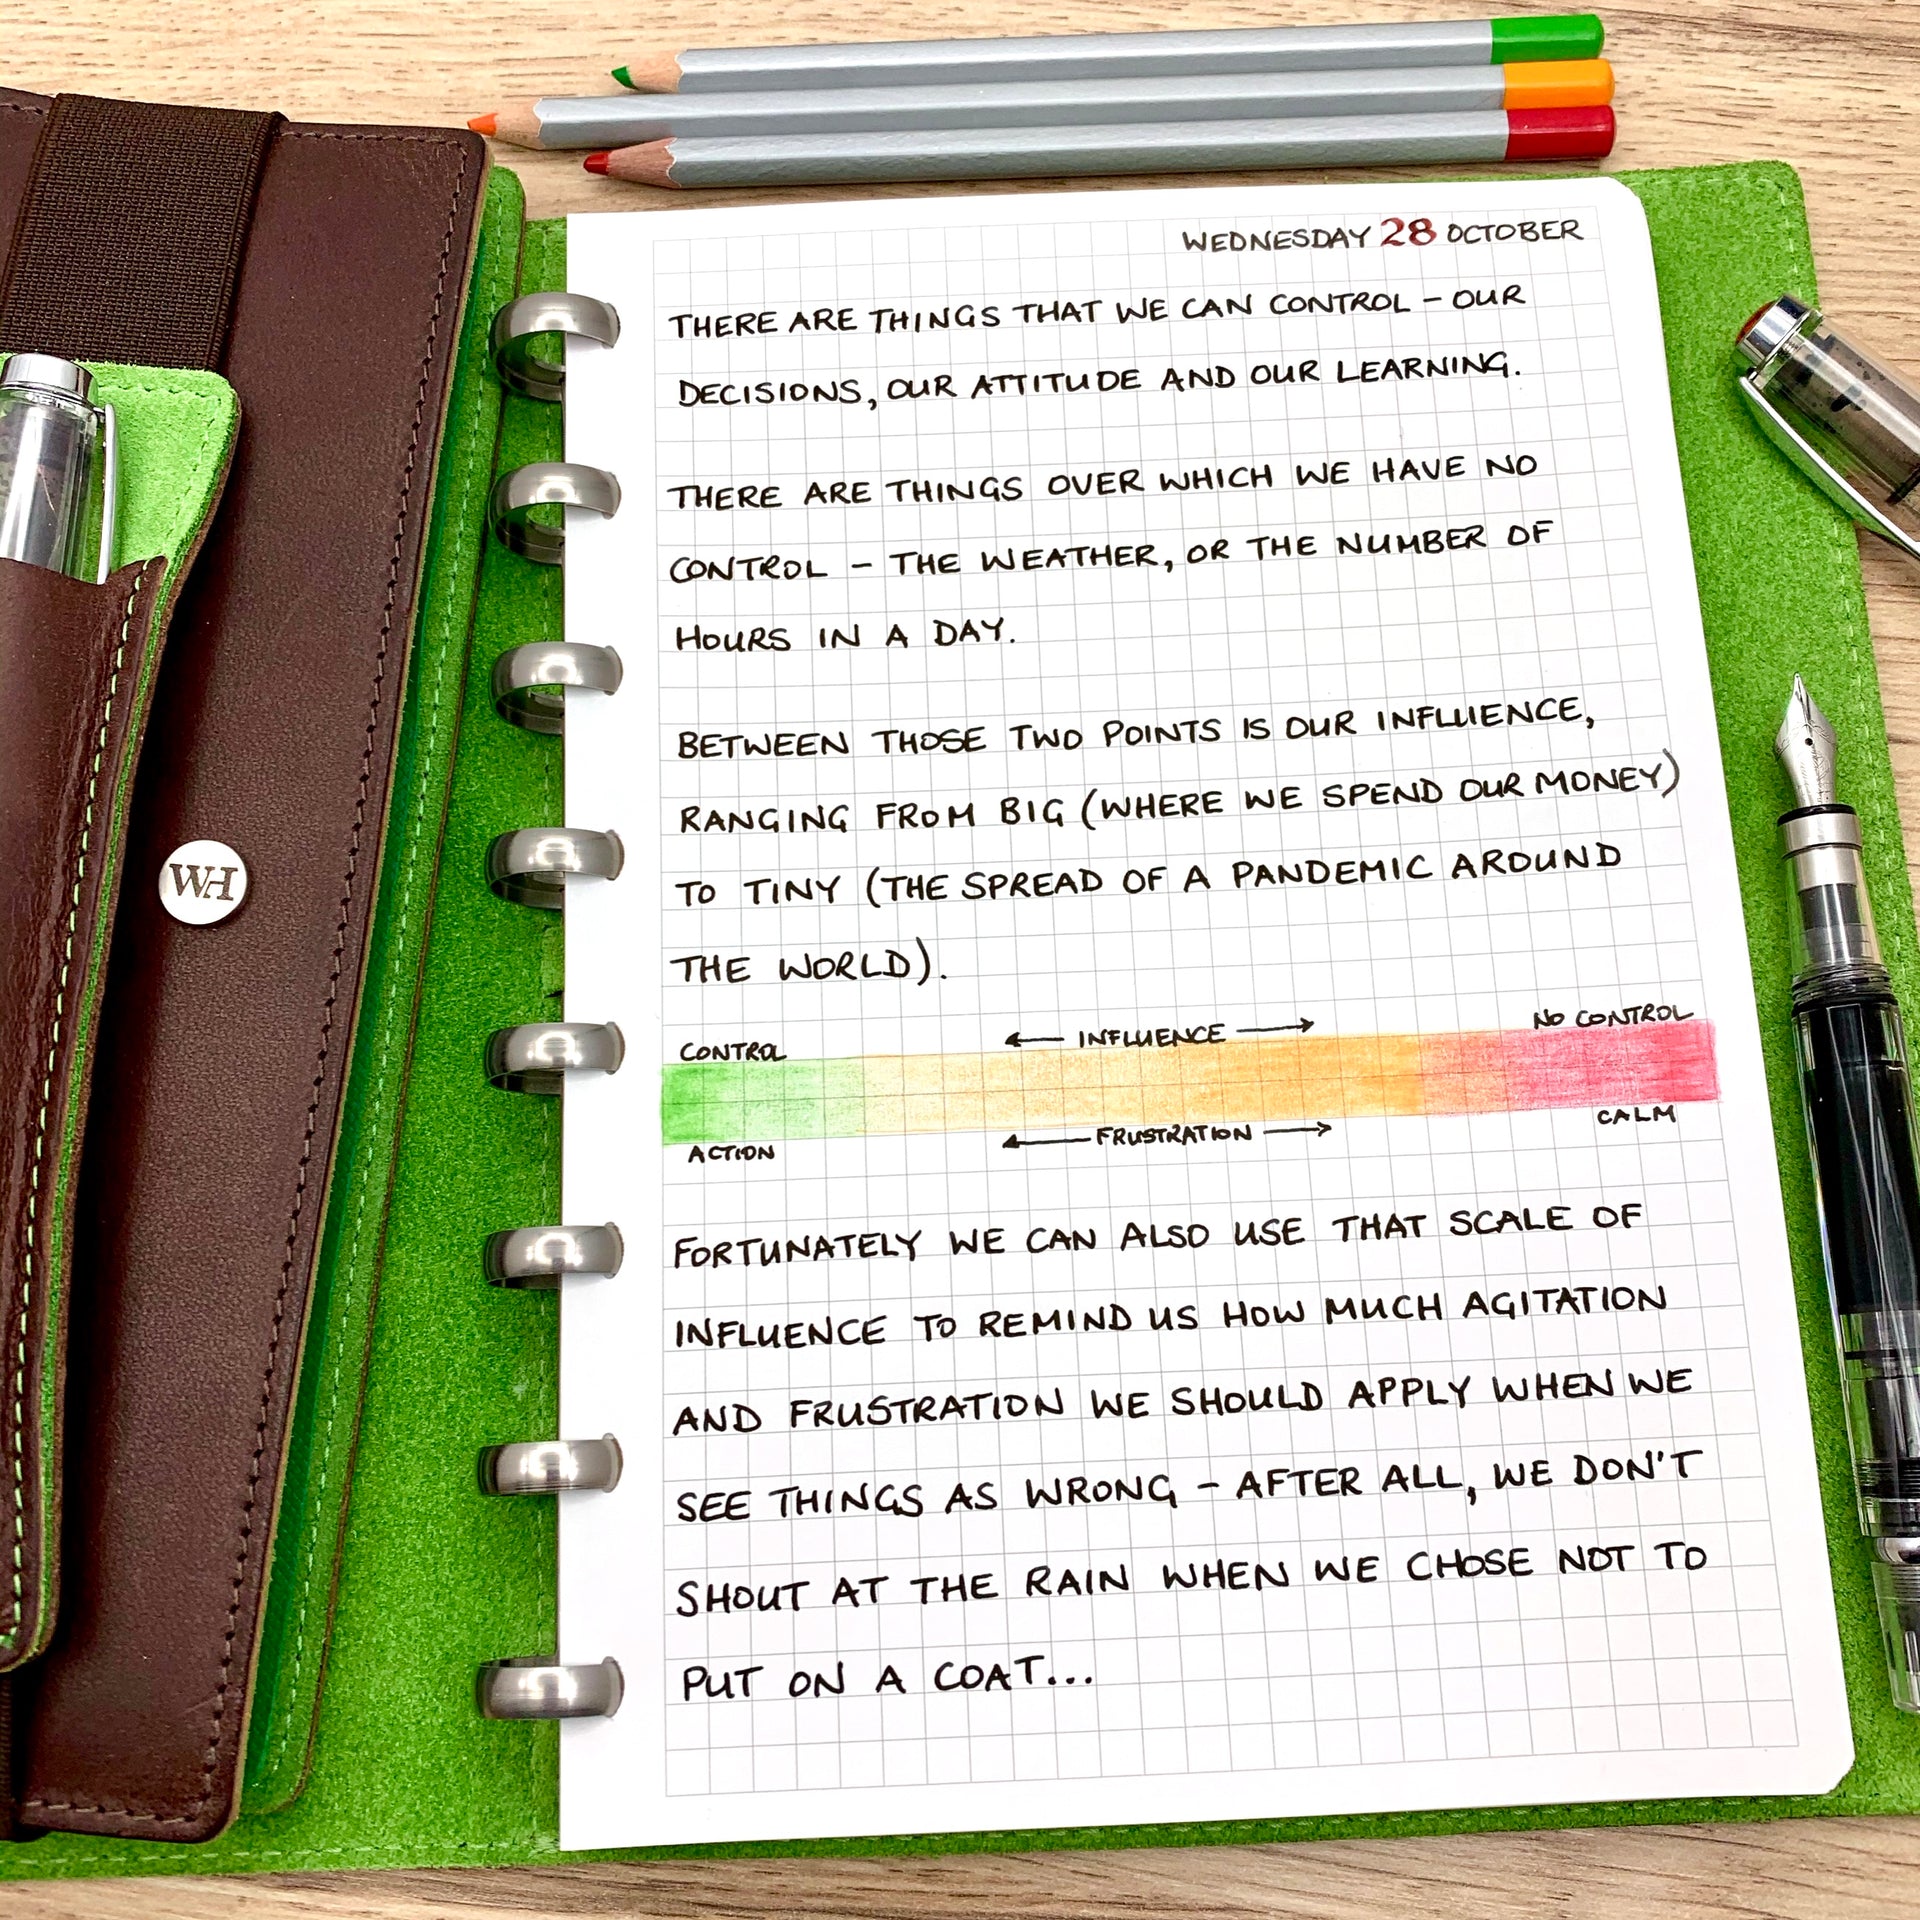 WEDNESDAY 28 OCTOBER
THERE ARE THINGS THAT WE CAN CONTROL – OUR
DECISIONS, OUR ATTITUDE AND OUR LEARNING.
THERE ARE THINGS OVER WHICH WE HAVE NO
CONTROL – THE WEATHER, OR THE NUMBER OF
HOURS IN A DAY.
BETWEEN THOSE TWO POINTS IS OUR INFLUENCE,
RANGING FROM BIG (WHERE WE SPEND OUR MONEY)
TO TINY (THE SPREAD OF A PANDEMIC AROUND
THE WORLD).
CONTROL ← INFLUENCE → NO CONTROL
ACTION ← FRUSTRATION → CALM
FORTUNATELY WE CAN ALSO USE THAT SCALE OF
INFLUENCE TO REMIND US HOW MUCH AGITATION
AND FRUSTRATION WE SHOULD APPLY WHEN WE
SEE THINGS AS WRONG – AFTER ALL, WE DON'T
SHOUT AT THE RAIN WHEN WE CHOSE NOT TO
PUT ON A COAT...
WH